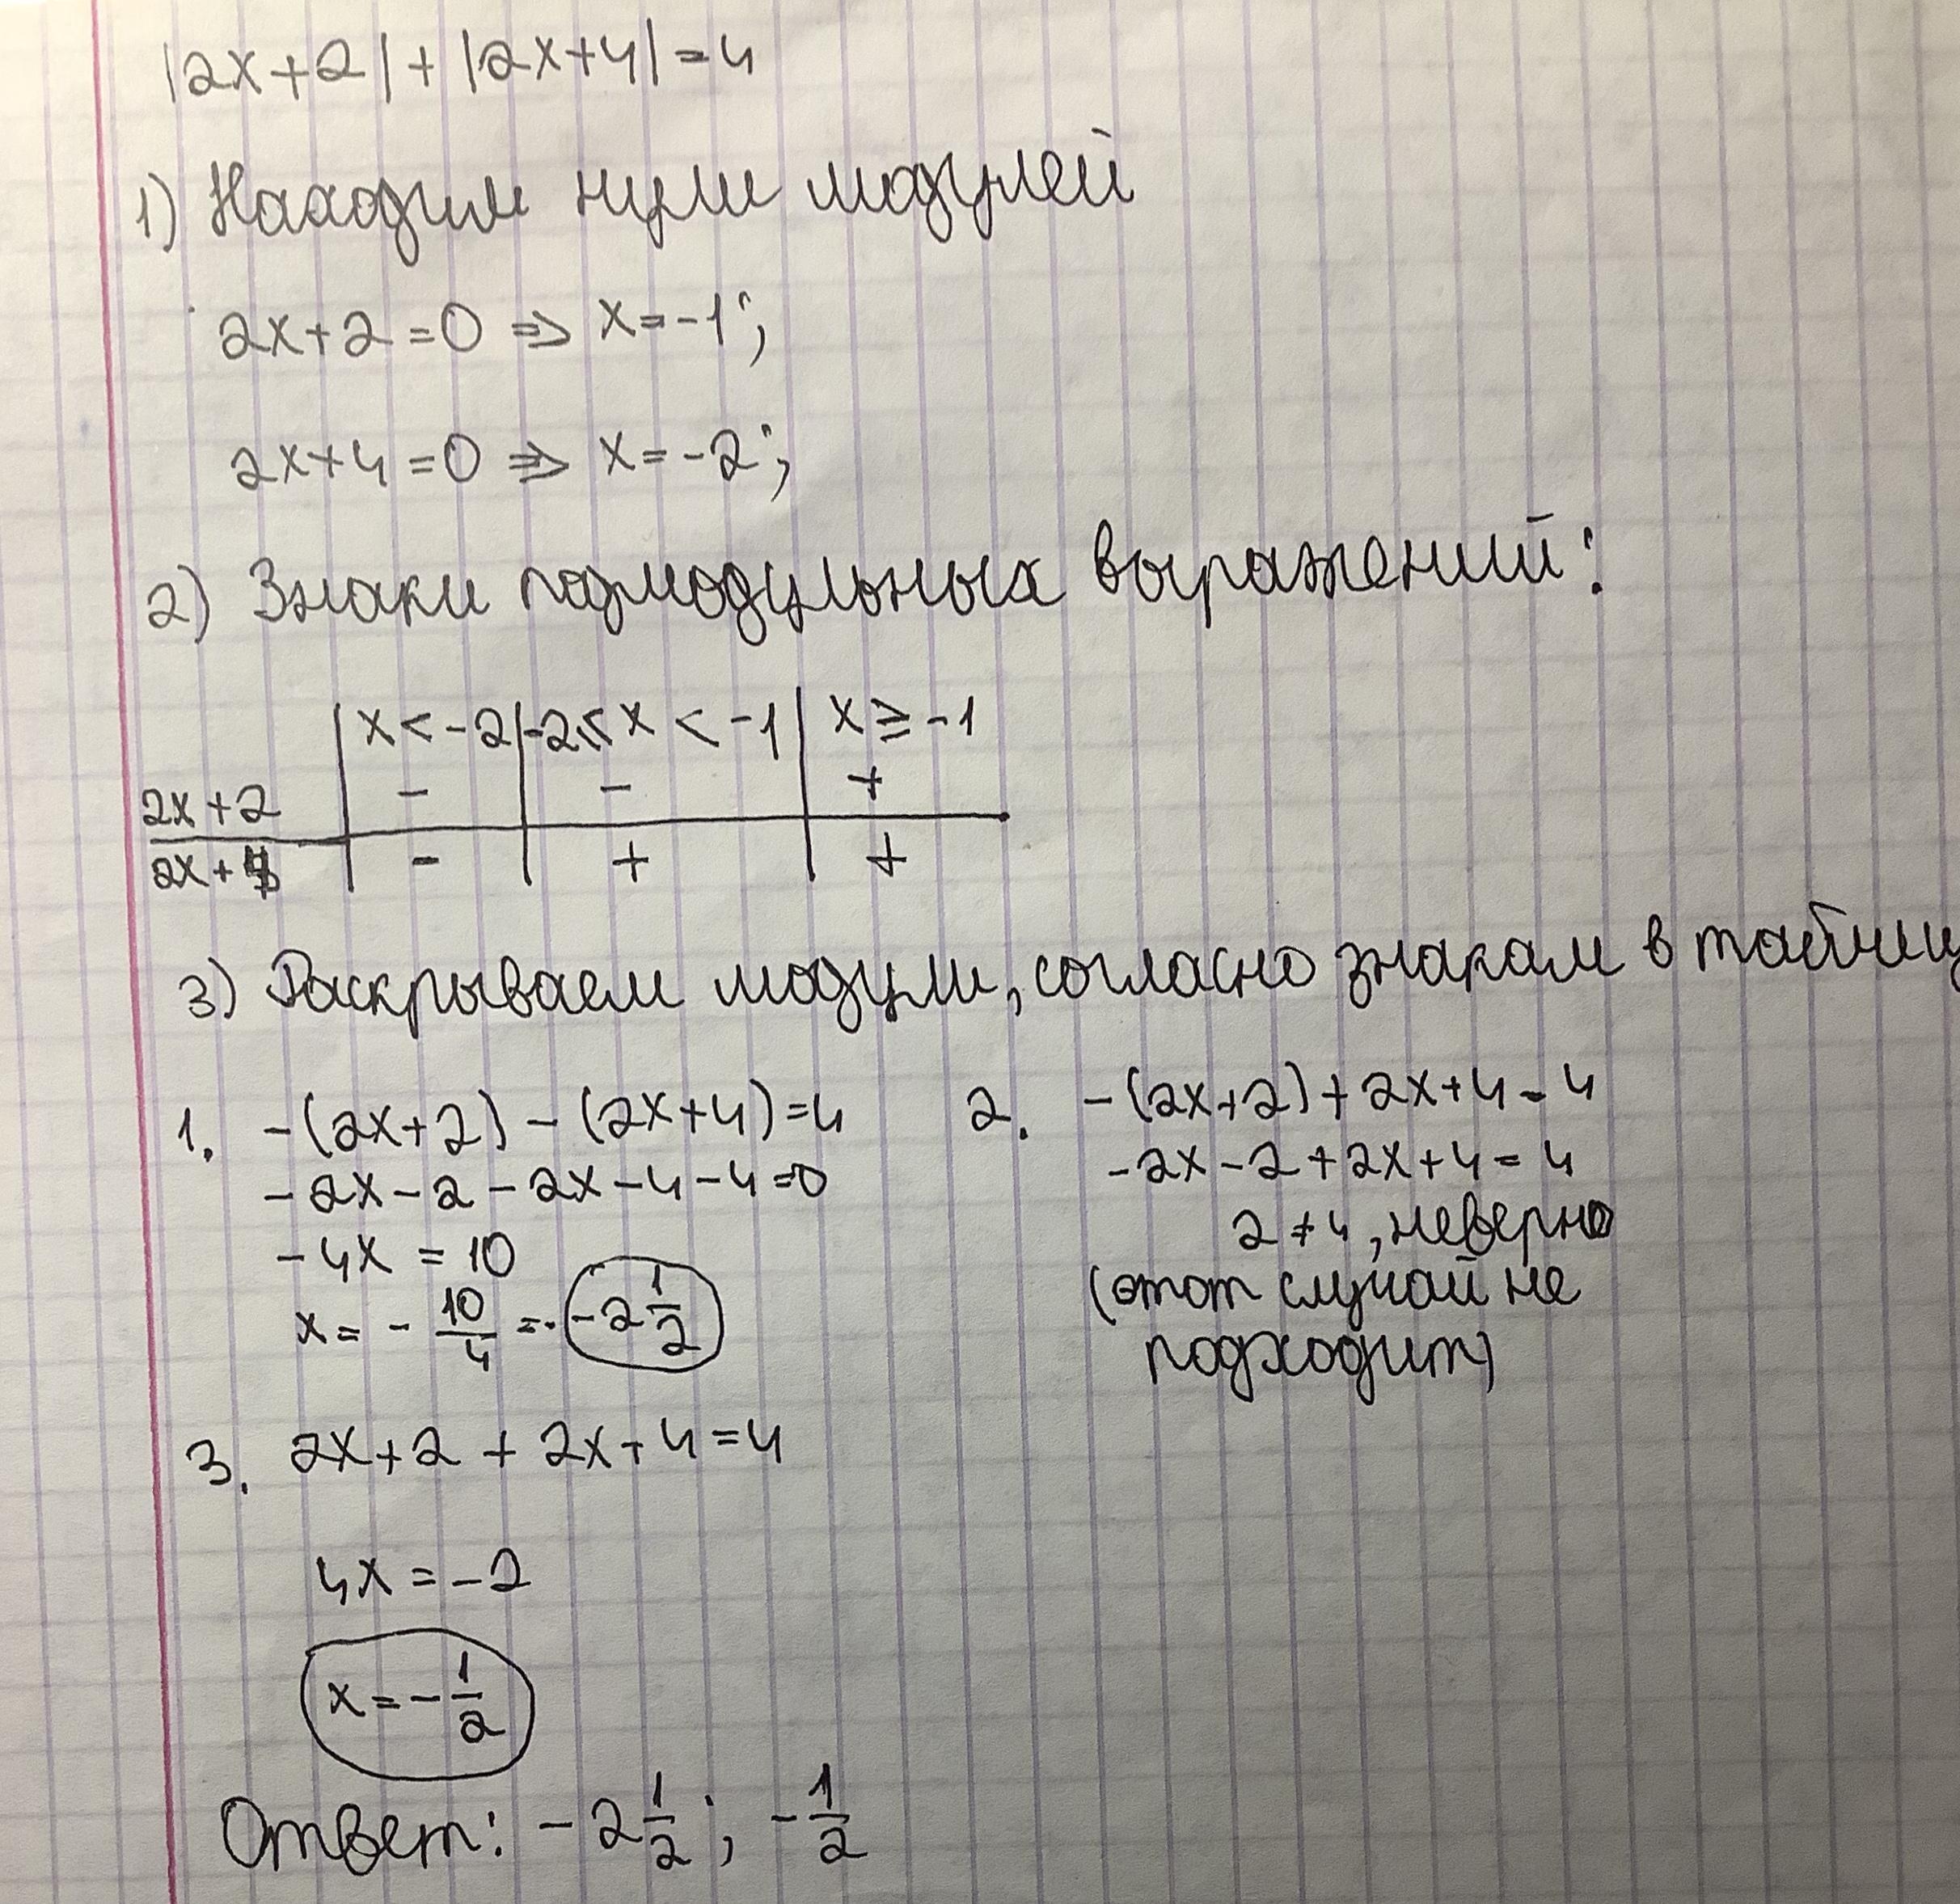 |2x+2|+|2x+4|=4
1) Находим нули модулей
2x+2=0 => x=-1;
2x+4=0 => x=-2;
2) Знаки подмодульных выражений:
x<-2 -2≤x<-1 x≥-1
2x+2 - - +
2x+4 - + +
3) Раскрываем модули, согласно знакам в
1. -(2x+2)-(2x+4)=4
-2x-2-2x-4-4=0
-4x=10
x=-10/4=-2 1/2
2. -(2x+2)+2x+4=4
-2x-2+2x+4=4
2≠4, неверно
(этот случай не
подходит)
3. 2x+2+2x+4=4
4x=-2
x=-1/2
Ответ: -2 1/2; -1/2